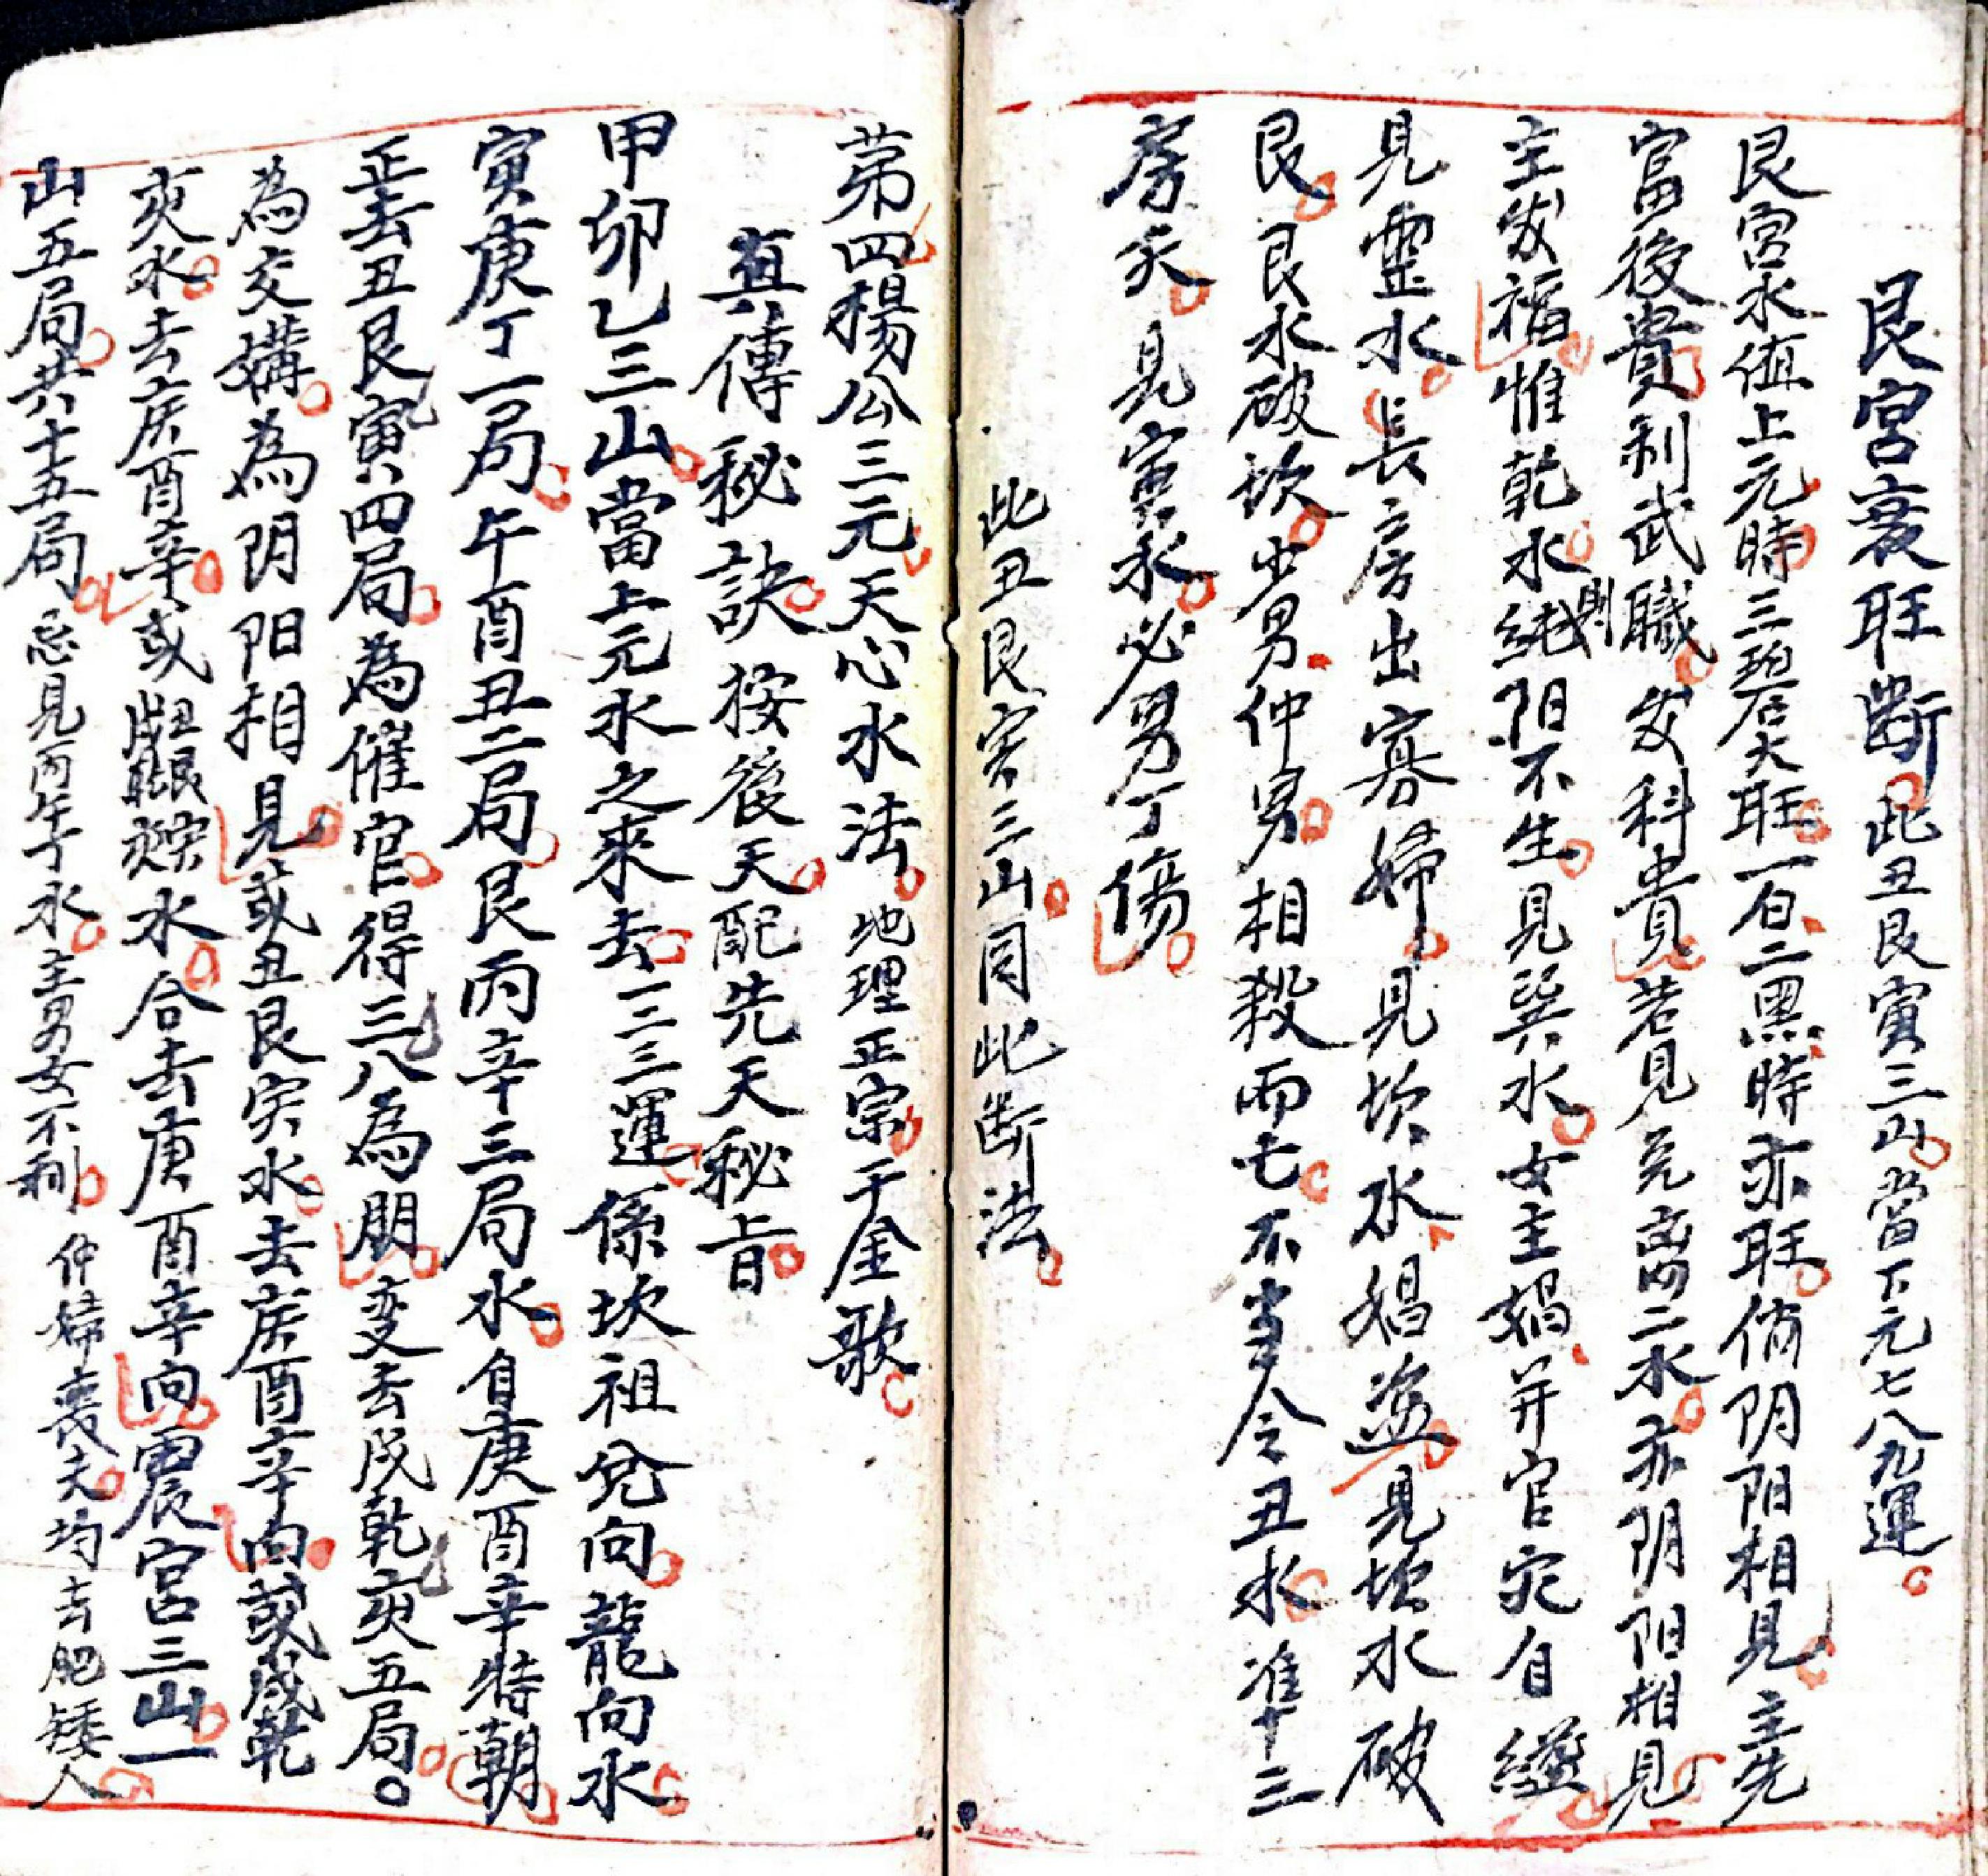 艮宮衰旺断此丑艮寅三山當下元七八九運
艮宮水值上元時三碧大旺一白二黑時亦旺俏阴阳相見主先
富後貴利武職則发科貴若見兑离二水亦阴阳相見
主发福惟乾水純阳不生見巽水女主娼并官灾自缢
見震水長房出寡婦見坎水娼盗見坎水破
艮艮水破坎少男仲男相殺而亡不当令丑水准十三
房夭見寅水必男丁傷
此丑艮寅三山同此断法
苐四楊公三元天心水法地理正宗千金歌
真傳秘訣按後天配先天秘旨
甲卯乙三山當上元水之來去一二三運係坎祖兌向龍向水
寅庚丁一局午酉丑二局艮丙辛三局水自庚酉辛特朝
正去丑艮寅四局為催官得三八為朋变去戌乾亥五局
為交媾為阴阳相見或丑艮寅水去庚酉辛向或戌乾
亥水去庚酉辛或水合去庚酉辛向震宮三山一
山五局共十五局忌見丙午丁水主男女不利仲婦喪夫均去肥矮人